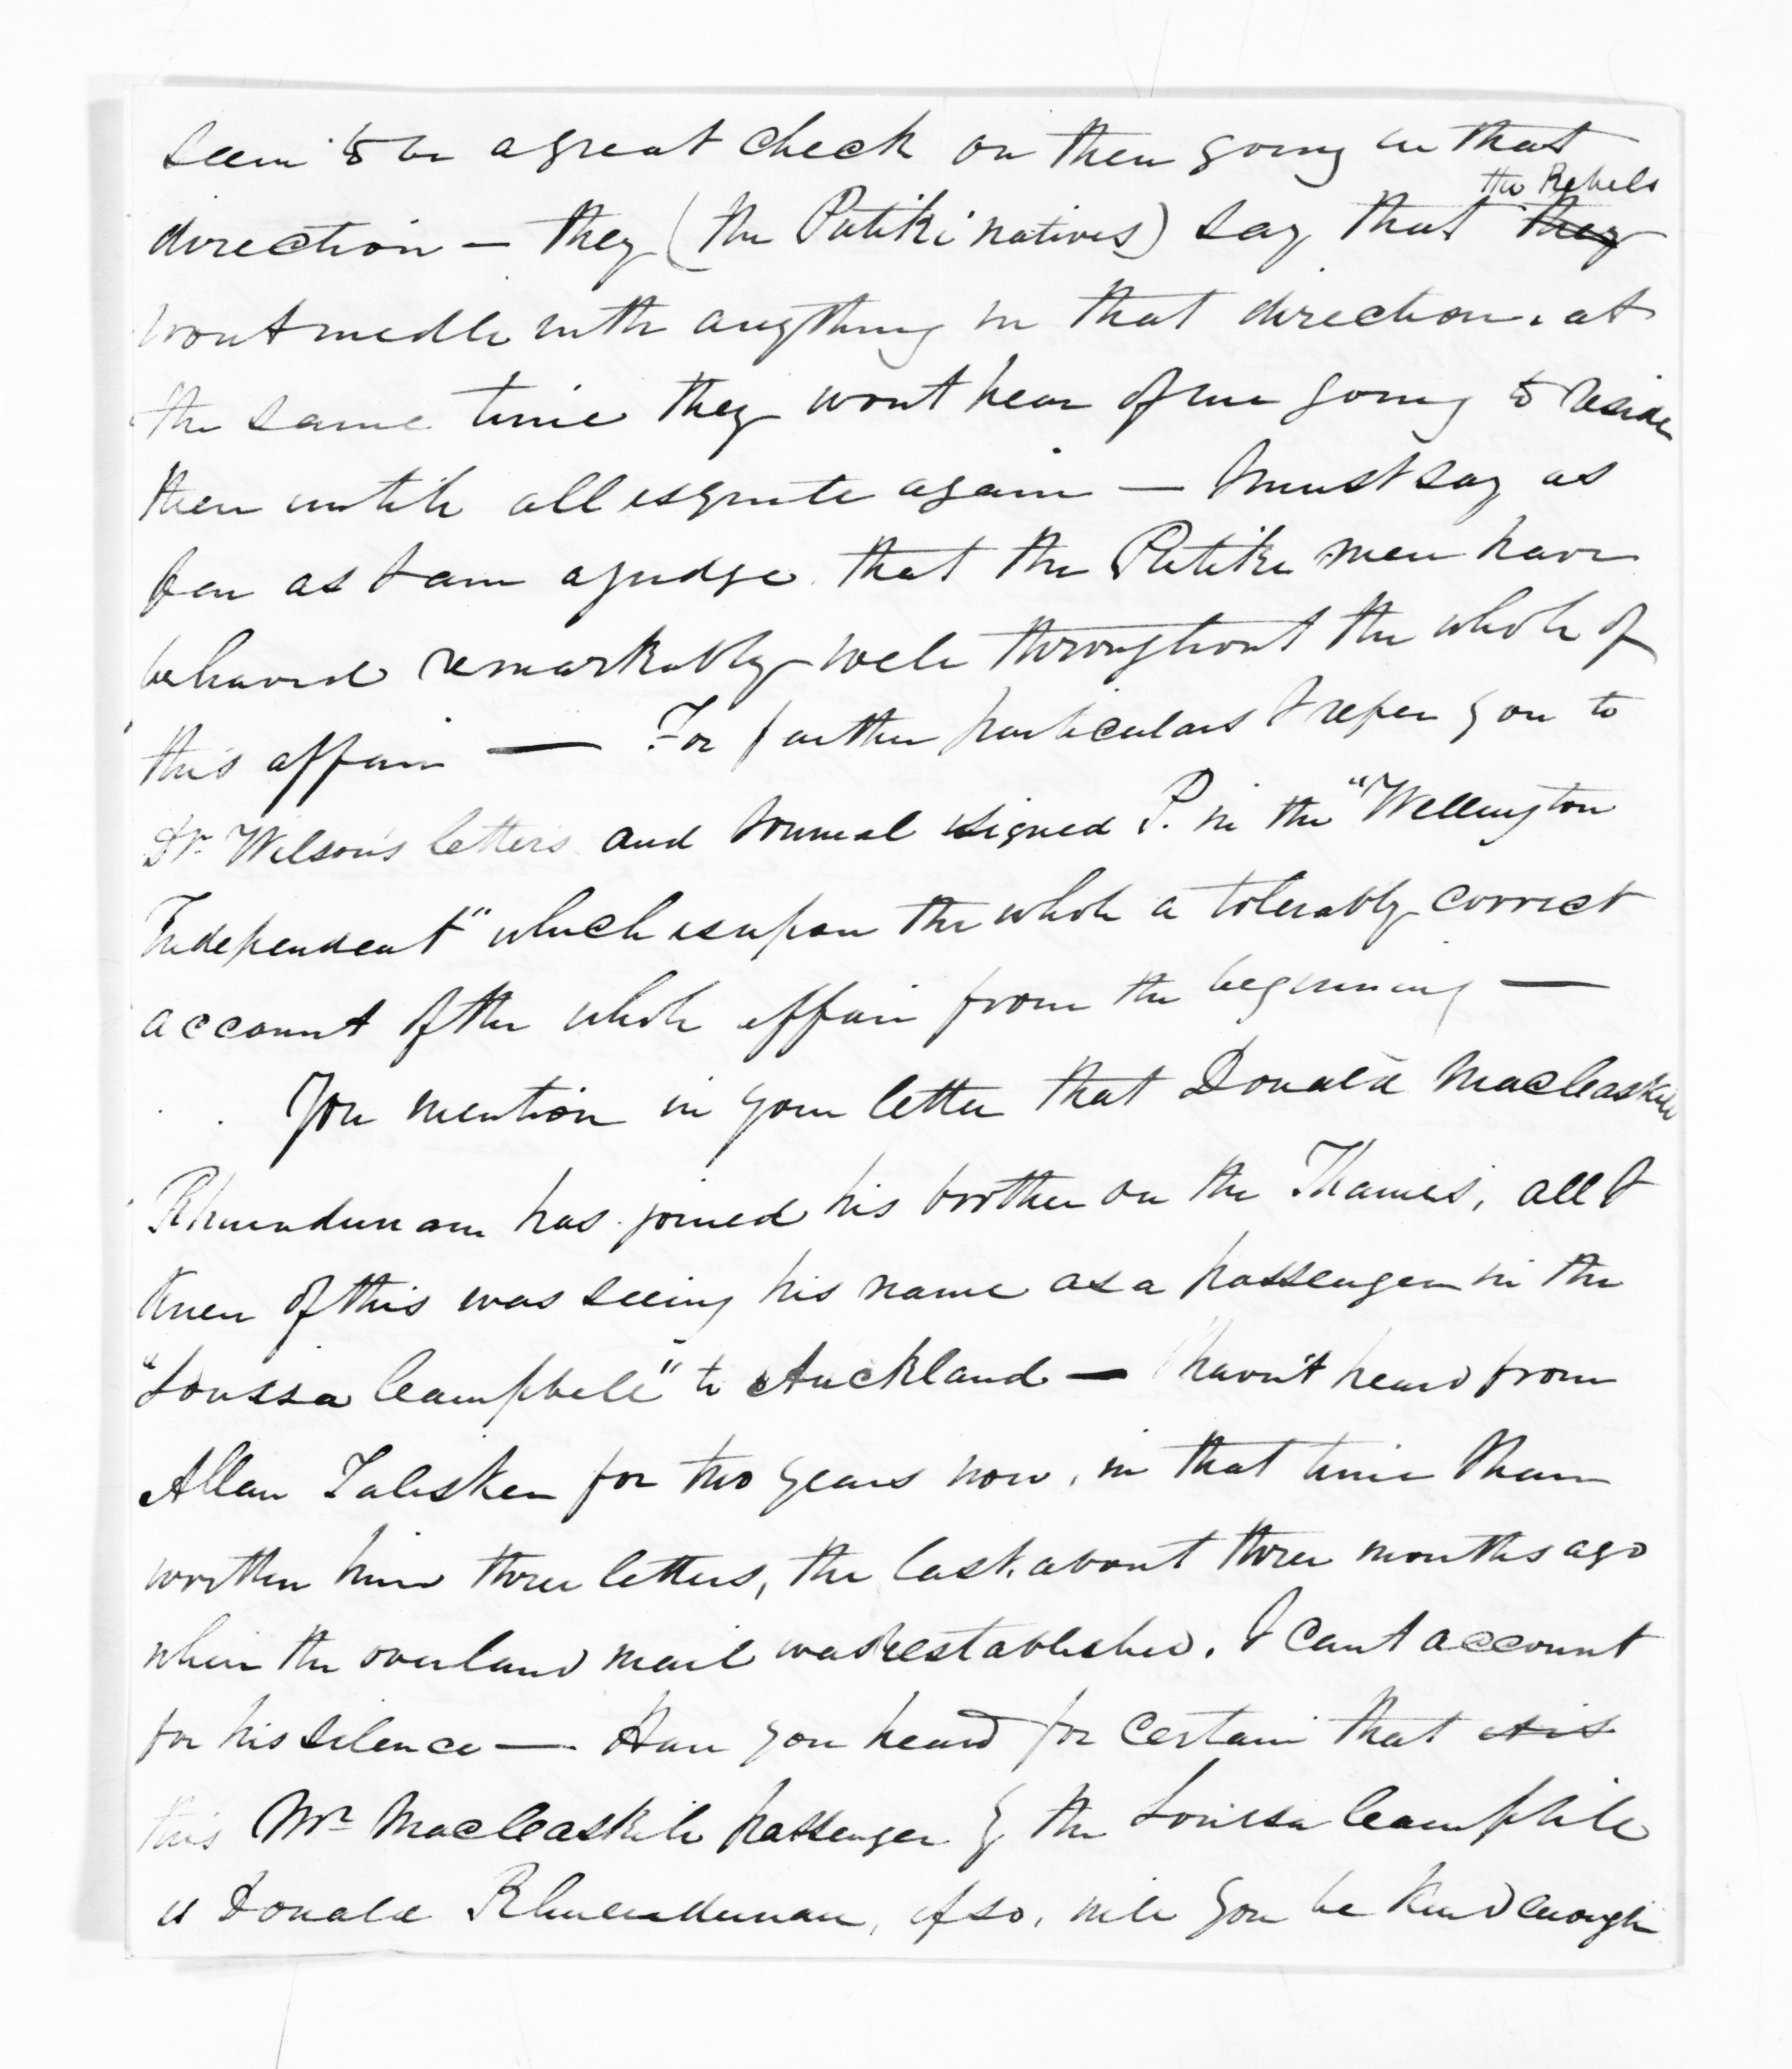 seem to be a great check on their going in that
direction — they (the Putiki natives) say that the Rebels they
wont medle with anything in that direction, at
the same time they wont hear of me going to reside
there until all is quite again — I must say as
far as I am a judge that the Putiki men have
behaved remarkably well throughout the whole of
this affair — For further particulars I refer you to
Dr Wilson's letters and Journal signed P. in the "Wellington
Independent" which is upon the whole a tolerably correct
account of the whole affair from the beginning —
You mention in your letter that Donald MacCaskill
Rhuendunan has joined his brother on the Thames, all I
knew of this was seeing his name as a passenger in the
"Louisa Campbell" to Auckland — I havn't heard from
Allan Talisker for two years now, in that time I have
written him three letters, the last about three months ago
when the overland mail was reestablished. I cant account
for his silence — Have you heard for certain that
this Mr MacCaskill passenger by the Louisa Campbell
is Donald Rhuendunan, if so, will you be kind enough